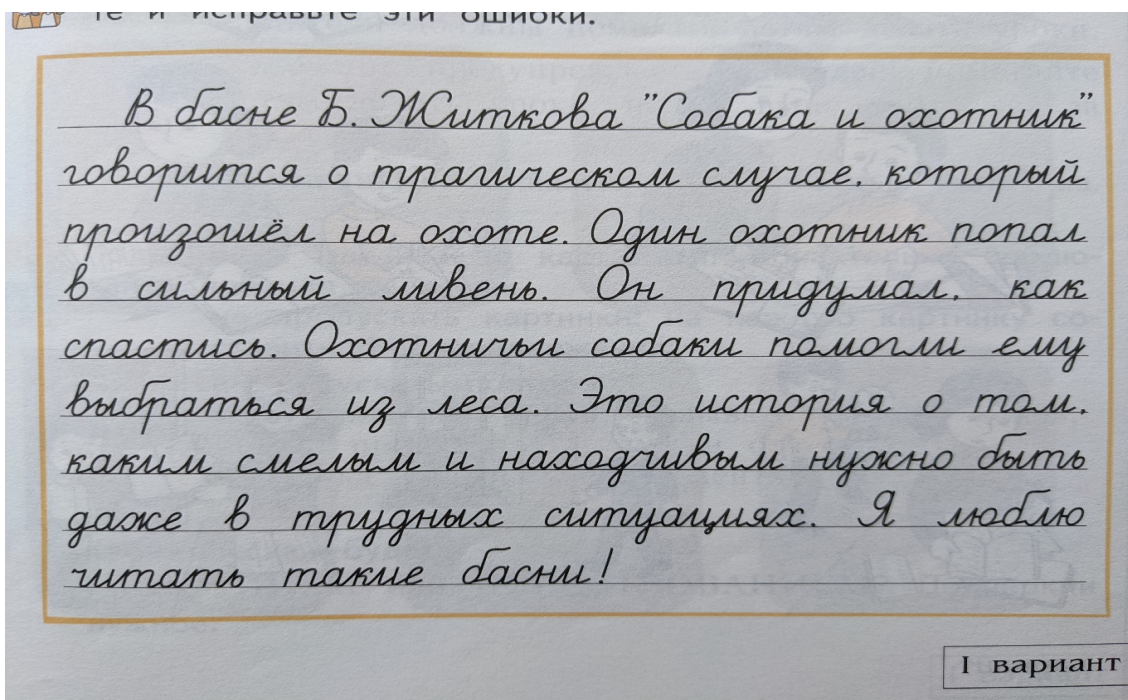 те и исправьте эти ошибки.
В басне Б. Житкова "Собака и охотник"
говорится о трагическом случае, который
произошёл на охоте. Один охотник попал
в сильный ливень. Он придумал, как
спастись. Охотничьи собаки помогли ему
выбраться из леса. Это история о том,
каким смелым и находчивым нужно быть
даже в трудных ситуациях. Я люблю
читать такие басни!
I вариант